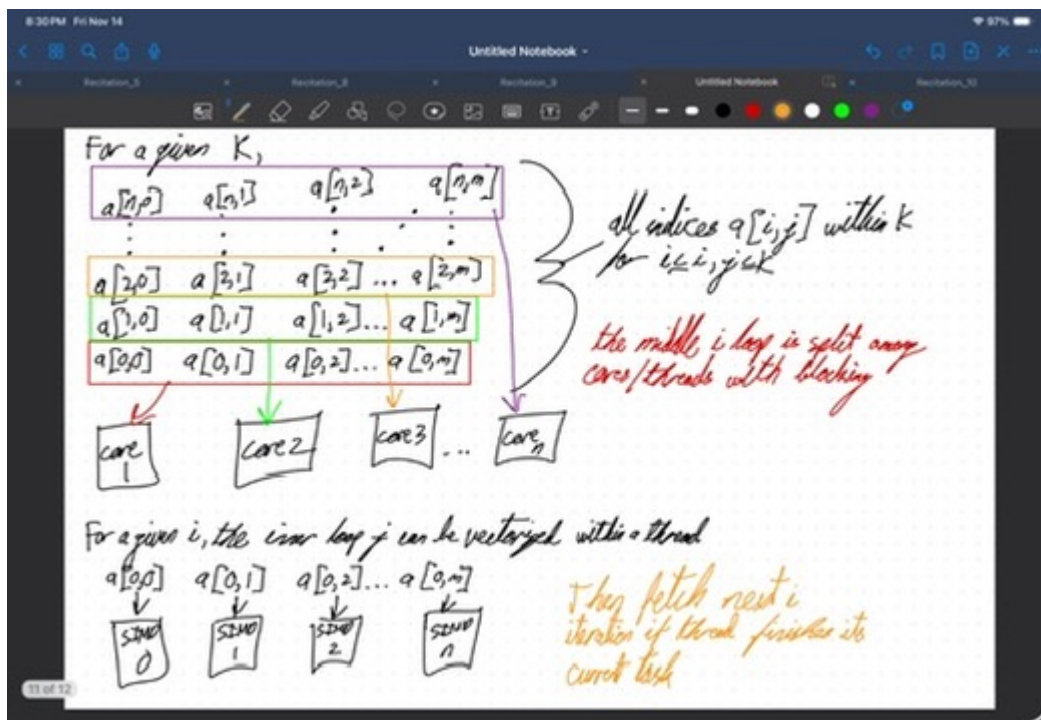 8:30 PM Fri Nov 14
97%
Untitled Notebook
Recitation_5
Recitation_8
Recitation_9
Untitled Notebook
Recitation_10
For a given K,
a[n,0] a[n,1] a[n,2] a[n,m]
a[2,0] a[2,1] a[2,2] ... a[2,m]
a[1,0] a[1,1] a[1,2] ... a[1,m]
a[0,0] a[0,1] a[0,2] ... a[0,m]
all indices a[i,j] within K
for i ≤ i, j ≤ K
the middle i loop is split among
cores/threads with blocking
core 1
core 2
core 3
...
core n
For a given i, the inner loop j can be vectorized within a thread
a[0,0] a[0,1] a[0,2] ... a[0,m]
SIMD 0
SIMD 1
SIMD 2
SIMD n
Then fetch next i
iteration if thread finishes its
current task
11 of 12